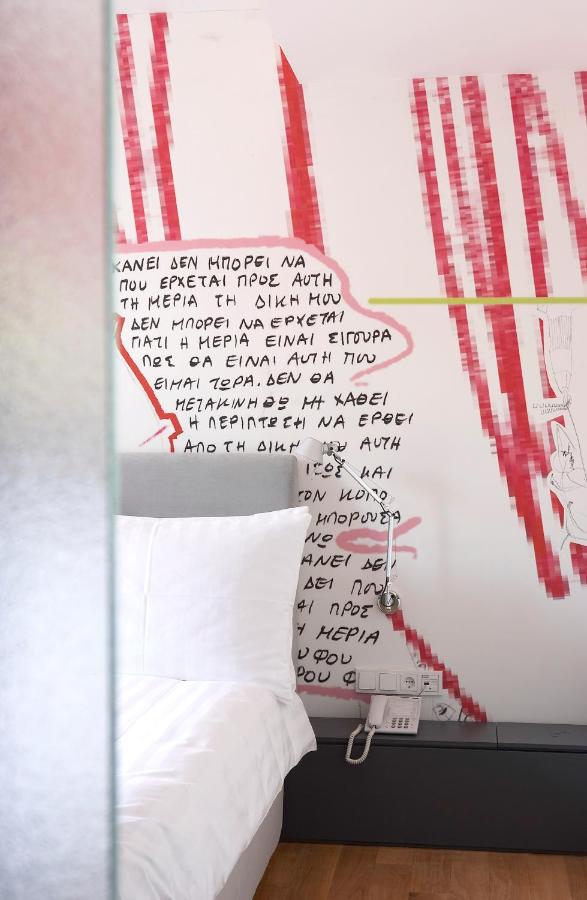 ΚΑΝΕΙ ΔΕΝ ΜΠΟΡΕΙ ΝΑ
ΠΟΥ ΕΡΧΕΤΑΙ ΠΡΟΣ ΑΥΤΗ
ΤΗ ΜΕΡΙΑ ΤΗ ΔΙΚΗ ΜΟΥ
ΔΕΝ ΜΠΟΡΕΙ ΝΑ ΕΡΧΕΤΑΙ
ΓΙΑΤΙ Η ΜΕΡΙΑ ΕΙΝΑΙ ΣΙΓΟΥΡΑ
ΠΩΣ ΘΑ ΕΙΝΑΙ ΑΥΤΗ ΠΟΥ
ΕΙΜΑΙ ΤΩΡΑ. ΔΕΝ ΘΑ
ΜΕΤΑΚΙΝΗΘΩ ΜΗ ΧΑΘΕΙ
Η ΠΕΡΙΠΤΩΣΗ ΝΑ ΕΡΘΕΙ
ΑΠΟ ΤΗ ΔΙΚΗ ΜΟΥ ΑΥΤΗ
ΚΑΙ
ΤΟΝ ΚΟΠΟ
ΜΠΟΡΟΥΣΑ
ΝΩ
ΚΑΝΕΙ ΔΕΝ
ΔΕΙ ΠΟΥ
ΑΙ ΠΡΟΣ
Η ΜΕΡΙΑ
Υ ΦΟΥ
ΡΟΥ Φ